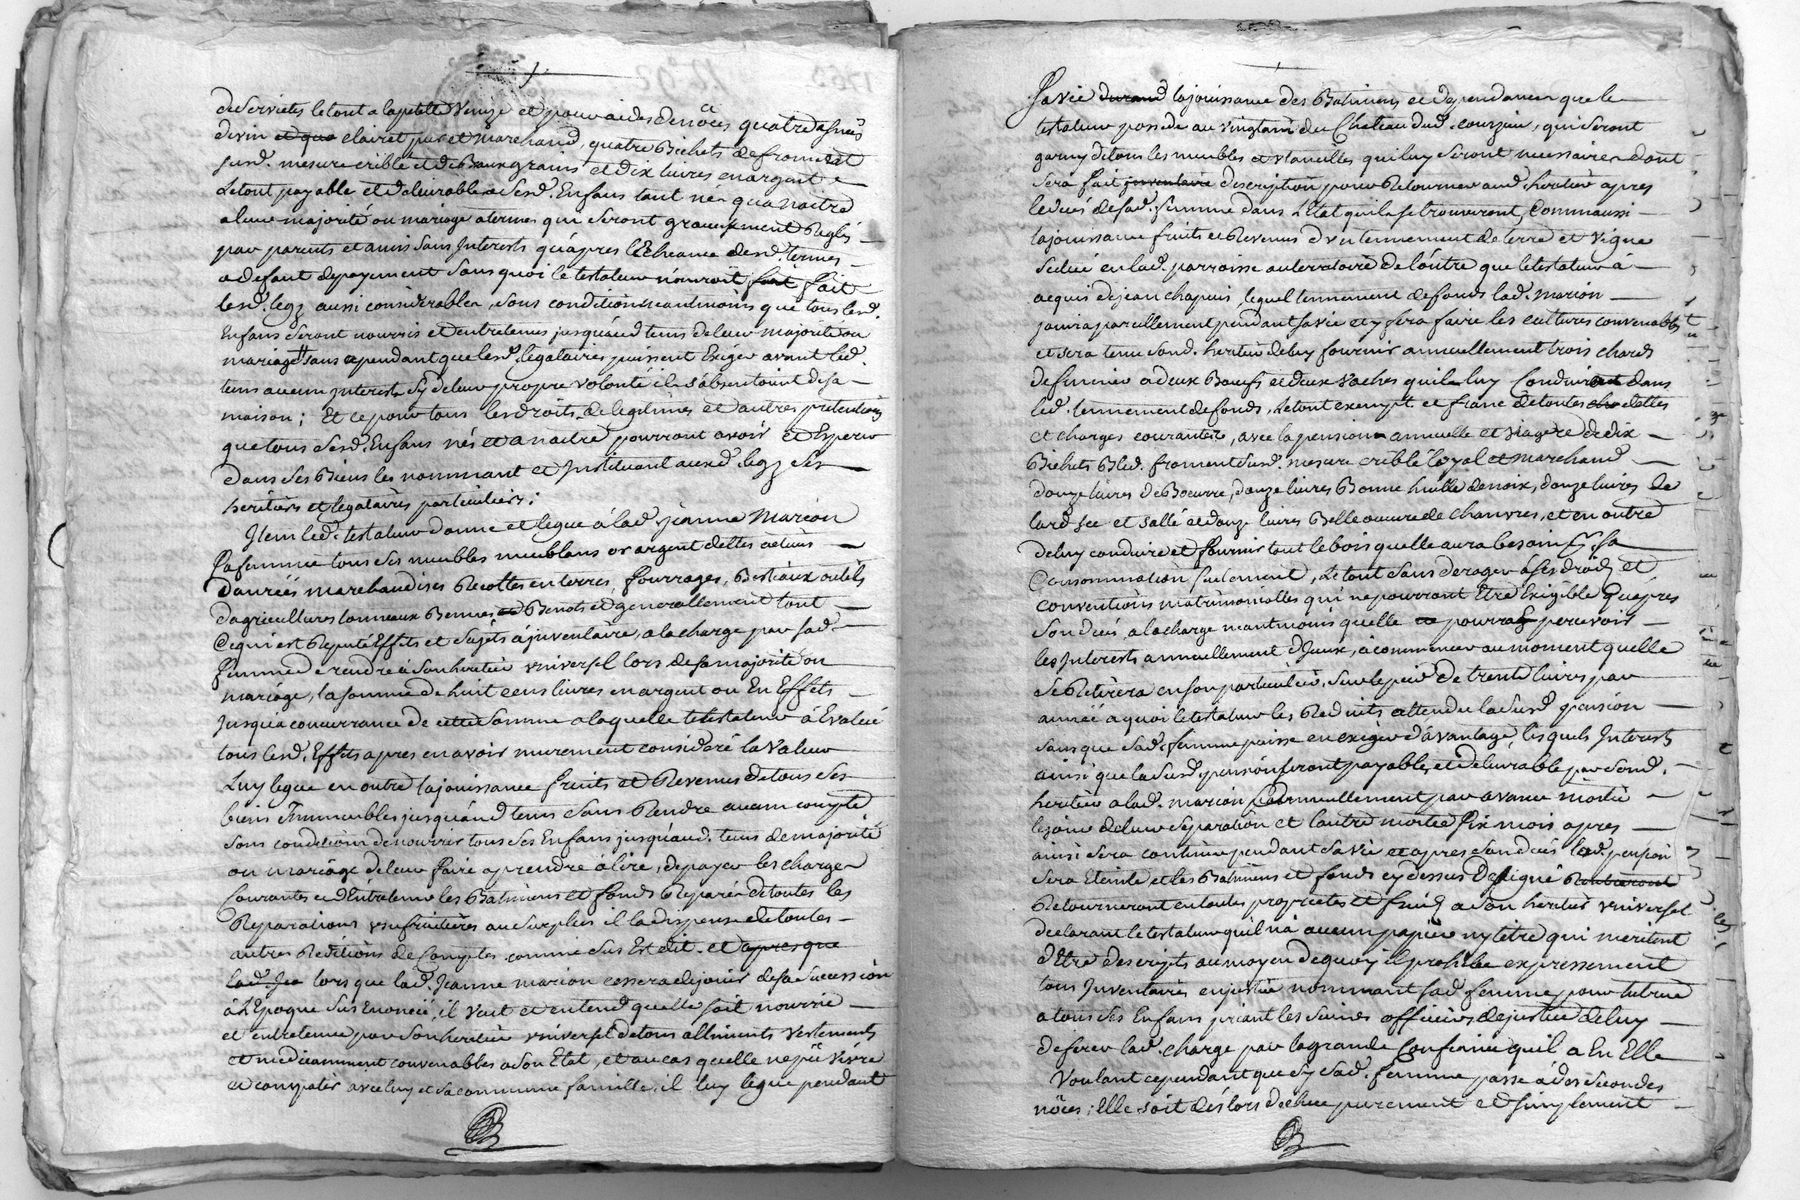 de serviettes le tout a la petitte Venize et pour aides de nôces quatre asnées
de vin et qua clairet pur et marchand, quatre Bichets de froment
susd. mesure crible et de Beaux grains et dix livres en argent
Le tout payable et delivrable a sesd. Enfans tant nés qua naitre
a leur majorité ou mariage a termes qui seront gratieusement Reglés
par parents et amis sans Interests qu'apres l'Echeance desd. termes
a defaut de payement sans quoi le testateur n'auroit fait fait
lesd. legz aussi considerables, sous condition neantmoins que tous lesd.
Enfans seront nourris et entretenus jusqu'aud tems de leur majorité ou
mariage sans cependant que lesd. legataires puissent Exiger avant led.
tems aucun interest Sy de leur propre volonté ils s'absentoint de sa
maison; Et ce pour tous les droits de legitimes et autres pretentions
que tous sesd. Enfans nés et a naitre pourront avoir et Esperer
dans ses Biens les nommant et Instituant auxd. legz ses
heritiers et legataires particuliers;
Item led. testateur donne et legue à lad. jeanne Marion
sa femme tous ses meubles meublans or argent dettes actives
danrées marchandises Recoltes en terres, fourrages, Bestiaux outils
dagricultures tonneaux Bennes et Benots et generallement tout
ce qui est Reputé Effets et sujets à jnventaire, a la charge par sad.
femme de rendre à son heritier universel lors de sa majorité ou
mariage, la somme de huit cens livres en argent ou En Effets
jusqu'a concurrance de cette somme a laquelle le testateur à Evalué
tous lesd. Effets apres en avoir murement consideré la Valeur
Luy legue en outre la jouissance fruits et Revenus de tous ses
biens Immeubles jusqu'aud tems sans Rendre aucun compte
sous condition de nourrir tous ses Enfans jusqu'aud. tems de majorité
ou mariage de leur faire aprendre à lire, de payer les charges
Courantes et d'Entretenir les Batimens et fonds Reparés de toutes les
Reparations usufruitières au surplus il la dispense de toutes
autres Reditions de Comptes comme sus Est dit. et apres que
lad. Jea lors que lad. Jeanne marion cessera de jouir de sa sucession
à l'Epoque sus Enoncée, il veut et entend quelle soit nourrie
et entretenue par son heritier universel de tous alliments vestements
et medicamment convenables a son Etat, et au cas quelle ne put vivre
et compatir avec luy et sa commune famille, il luy legue pendant
Sa vie durand la jouissance des Batimens et dependances que le
testateur possede au vingtain du Chateau dud. courzieu, qui seront
garny de tous les meubles et ustancilles qui luy seront necessaires dont
sera fait jnventaire description pour Retourner aud. heritier apres
le decès de sad. femme dans l'Etat quils se trouveront, Comme aussi
la jouissance fruits et Revenus d'un tennement de terre et vigne
scitué en lad. parroisse au territoire de loutre que le testateur à
acquis de jean chapuis, lequel tennement de fonds lad. marion
jouira pareillement pendant sa vie et y fera faire les cultures convenables
et sera tenu sond. heritier de luy fournir annuellement trois chards
de fumier a deux Boeufs et deux vaches quil luy Conduira dans
led. tennement de fonds, Le tout exempt et franc de toutes dettes
et charges courantes, avec la pension annuelle et viagere de dix
Bichets Bled. froment susd. mesure crible loyal et marchand
douze livres de Boeurre, douze livres Bonne huille de noix, douze livres de
lard sec et sallé et douze livres Belle oeuvre de chanvres, et en outre
de luy conduire et fournir tout le bois quelle aura besoin pr. sa
Consommation seulement, Le tout sans deroger à ses droits et
conventions matrimonialles qui ne pourront Etre Exigible Quapres
son decès a la charge neantmoins quelle pourra percevoir
les Interests annuellement d'Iceux, à commencer au moment quelle
se Retirera en son particulier, sur le pied de trente livres par
année a quoi le testateur les Reduits attendu la susd. pension
sans que sad. femme puisse en exiger d'avantage, lesquels Interests
ainsi que la susd. pension seront payables, et delivrable par sond.
heritier a lad. marion annuellement par avance moitié
le jour de leur separation et lautre moitié six mois apres
ainsi sera continué pendant sa vie et apres son decès lad. pension
sera Eteinte et les Batimens et fonds cy dessus Designé Rentreront
Retourneront en toutes proprietés et fruits a son heritier universel
declarant le testateur quil n'a aucun papier ny titre qui meritent
dEtre descripts au moyen de quoy il prohibe expressement
tous Inventaires en justice nommant sad. femme pour tutrice
a tous ses Enfans priant les sieurs officiers de justice de luy
deferer lad. charge par la grande Confiance quil a En Elle
Voulant cependant que sy sad. femme passe à des secondes
nôces; Elle soit dés lors dechue purement et simplement